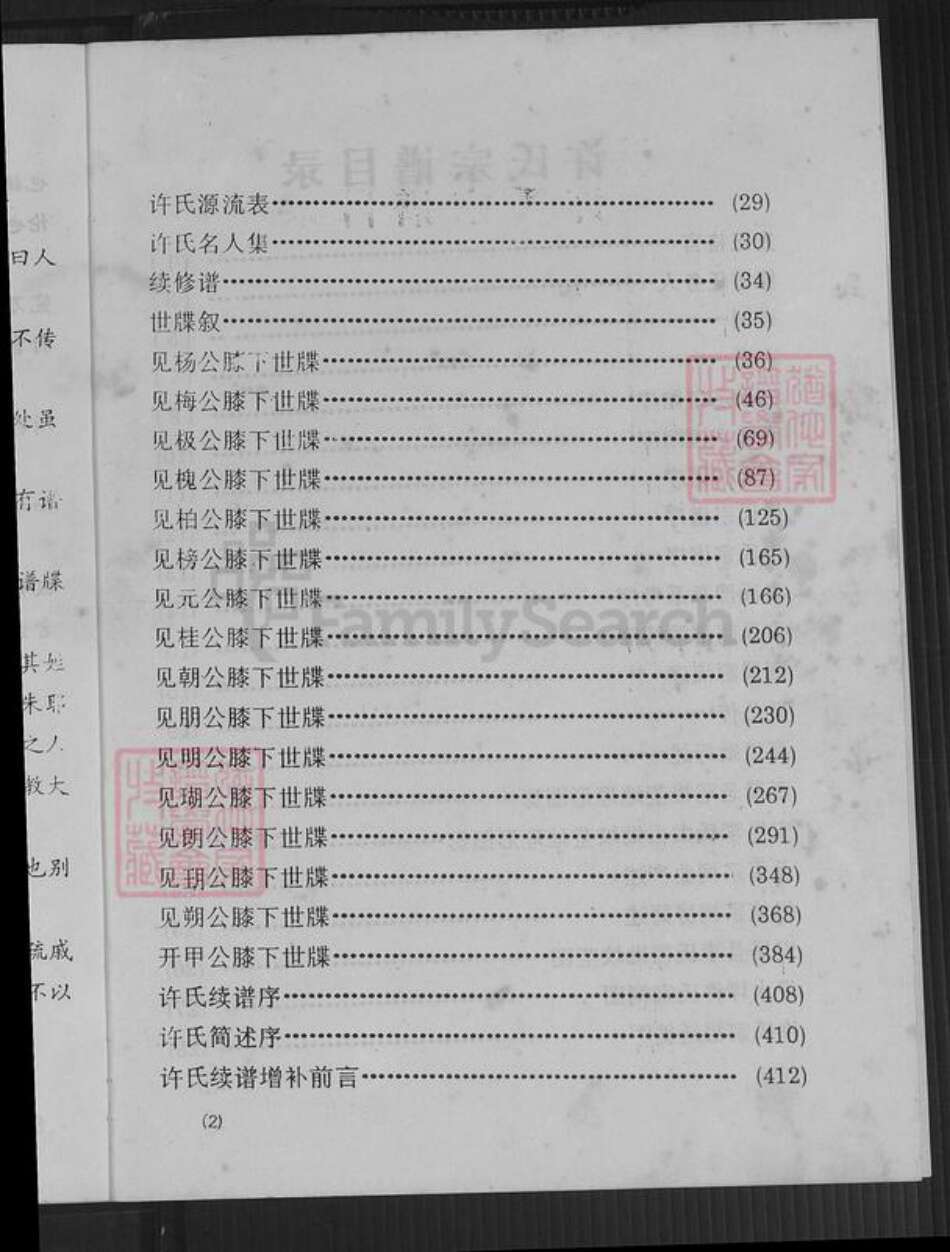 许氏源流表……(29)
许氏名人集……(30)
续修谱……(34)
世牒叙……(35)
见杨公膝下世牒……(36)
见梅公膝下世牒……(46)
见极公膝下世牒……(69)
见槐公膝下世牒……(87)
见柏公膝下世牒……(125)
见榜公膝下世牒……(165)
见元公膝下世牒……(166)
见桂公膝下世牒……(206)
见朝公膝下世牒……(212)
见朋公膝下世牒……(230)
见明公膝下世牒……(244)
见瑚公膝下世牒……(267)
见朗公膝下世牒……(291)
见玥公膝下世牒……(348)
见朔公膝下世牒……(368)
开甲公膝下世牒……(384)
许氏续谱序……(408)
许氏简述序……(410)
许氏续谱增补前言……(412)
(2)
曰人
不传
处虽
有谱
谱牒
其姓
朱耶
之人
教大
也别
疏戚
不以
FamilySearch